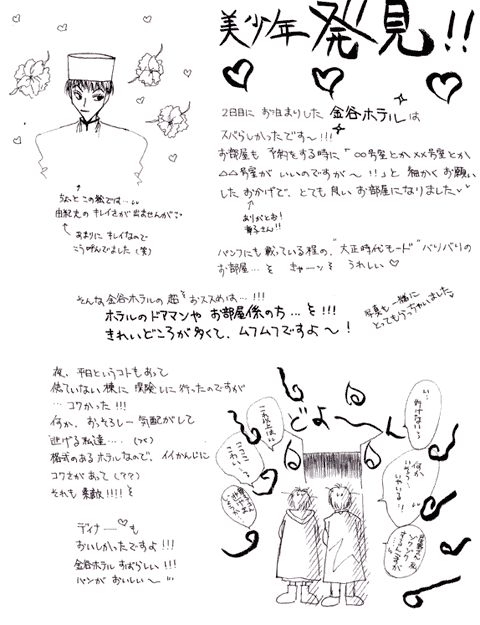 美少年発見!!
2日目にお泊まりした 金谷ホテルは
スバらしかったです〜!!!
お部屋も 予約をする時に「○○号室とか××号室とか
△△号室が いいのですが〜!!」と 細かく お願い
したおかげで、とても良いお部屋になりました
ありがとお!
さん!!
パンフにも載っている程の、"大正時代モード"バリバリの
お部屋…を きゃーっ うれしい♡
ちょっとこの絵です…
由紀夫のキレイさが出ませんが
あまりに キレイなので
こう呼んでました(笑)
そんな金谷ホテルの超おススめは…!!!
ホテルのドアマンや お部屋係のち…を!!!
きれいどころが多くて、ムフムフですよ〜!
写真も一緒に
とってもらっちゃいました
夜、平日というコトもあって
使っていない棟に 探険しに行ったのですが
…コワかった!!!
何か、おっそろしー 気配がして
逃げる私達…
格式のあるホテルなので、イイかんじに
コワさがあって(??)
それも 素敵!!!!
ディナー♡も
おいしかったですよ!!!
金谷ホテル すばらしい!!!
パンが おいしい〜
どよ〜ん
これ以上は…
ここここ
こわい…
い…
行けない…
何か
いやぃる!
ゾクゾク